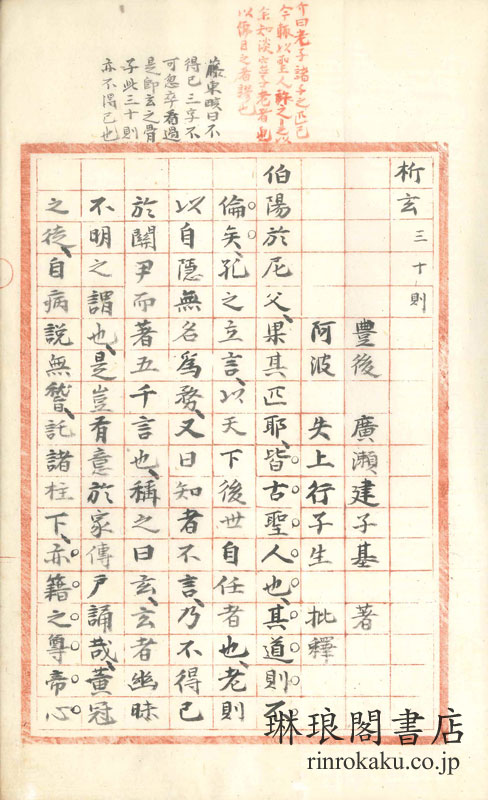 析玄 三十則
豐後 廣瀨建子基 著
阿波 失上行子生 批釋
伯陽於尼父、果其匹耶、皆古聖人也、其道則不
倫矣、孔之立言、以天下後世自任者也、老則
以自隱無名爲務、又曰知者不言、乃不得已
於關尹而著五千言也、稱之曰玄、玄者幽昧
不明之謂也、是豈有意於家傳戶誦哉、黃冠
之徒、自病說無稽、託諸柱下、亦籍之尊帝心
亦曰老子諸子之匹已
今輒以聖人
以像目之者謬也
藤東畡曰不
得已三字不
可忽卒看過
是即玄之骨
子此三十則
亦不得已也
琳琅閣書店
rinrokaku.co.jp